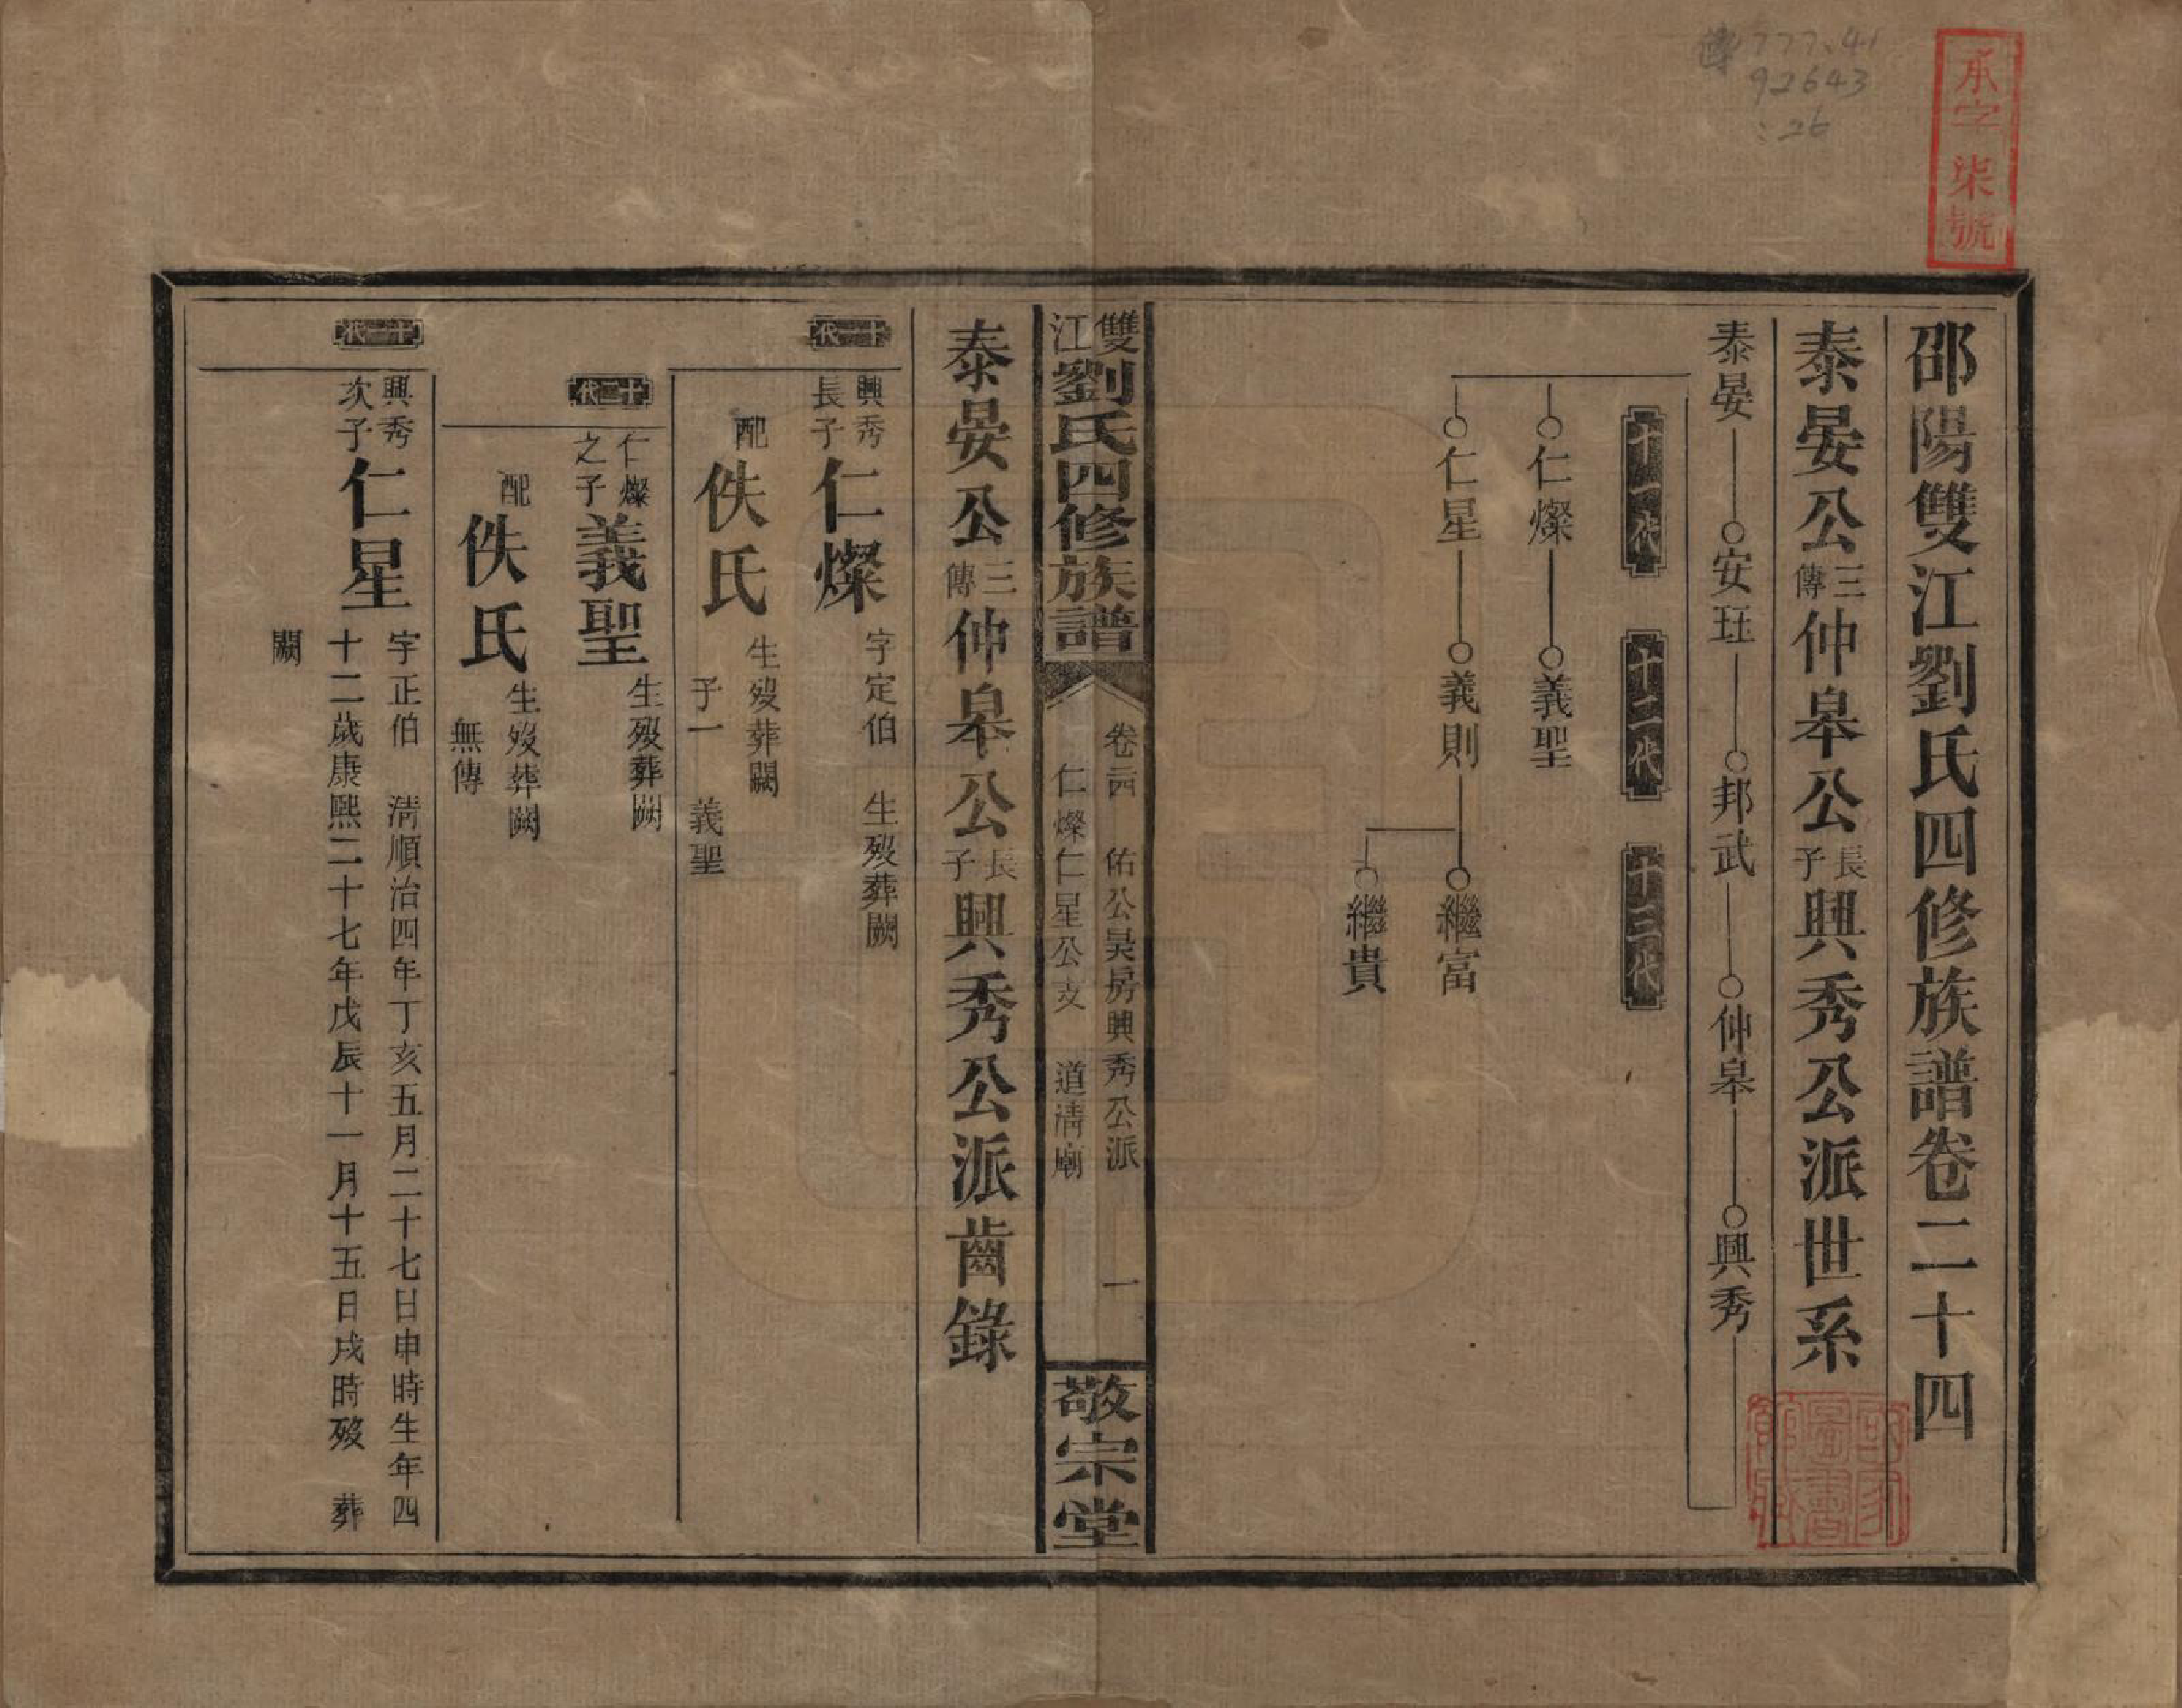 777.41
92643
:26
承字柒號
邵陽雙江劉氏四修族譜卷二十四
泰晏公三傳仲皋公長子興秀公派世系
泰晏 安玨 邦武 仲皋 興秀
十一代 十二代 十三代
仁燦 義聖
仁星 義則 繼富
繼貴
國家圖書館藏
雙江劉氏四修族譜
卷二四 佑公昊房興秀公派 一
仁燦仁星公支 道淸廟
敬宗堂
泰晏公三傳仲皋公長子興秀公派齒錄
十一代
興秀長子仁燦 字定伯 生歿葬闕
配佚氏 生歿葬闕
子一 義聖
十二代
仁燦之子義聖 生歿葬闕
配佚氏 生歿葬闕
無傳
十一代
興秀次子仁星 字正伯 淸順治四年丁亥五月二十七日申時生年四
十二歲康熙二十七年戊辰十一月十五日戌時歿 葬
闕